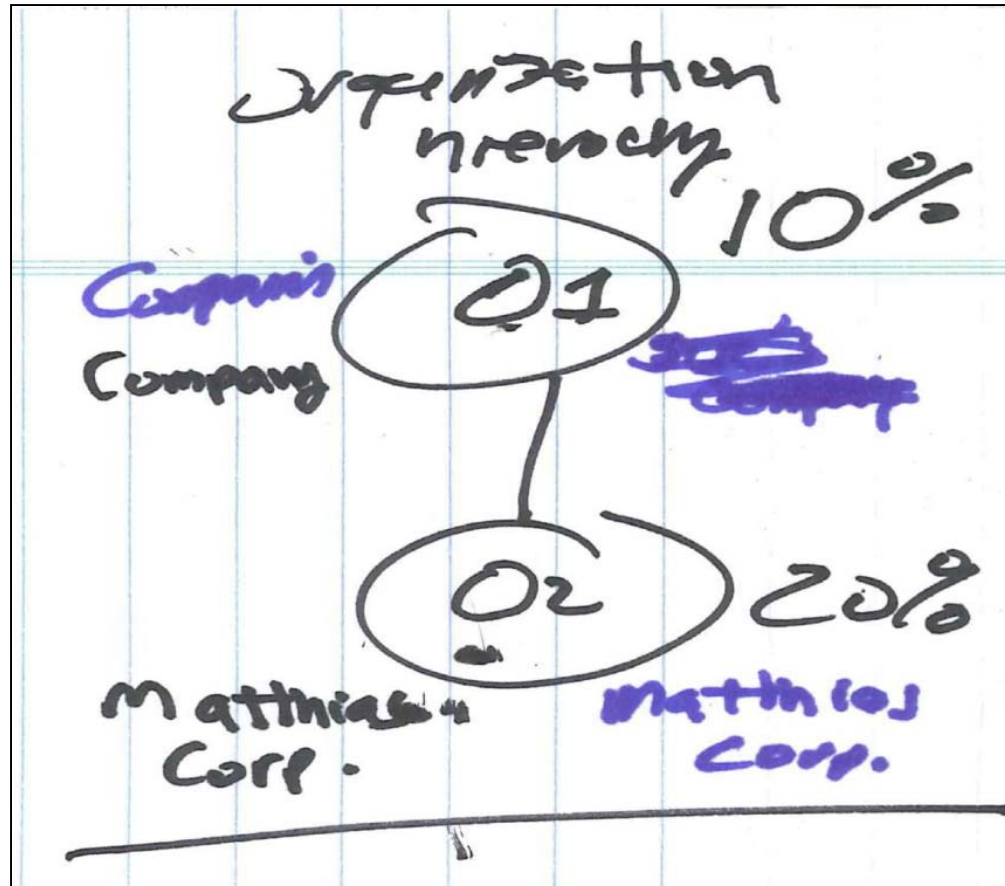 Organization
hierarchy
10%
O1
Company
O2
20%
Matthias
Corp.
Matthias
Corp.